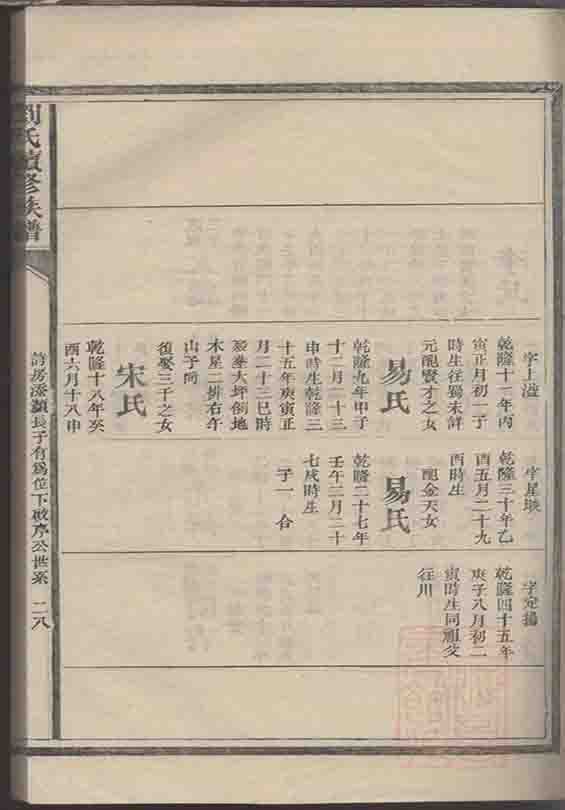 字上溢
乾隆十一年丙
寅正月初一子
時生往蜀未詳
元配賢才之女
易氏
乾隆九年甲子
十二月二十三
申時生乾隆三
十五年庚寅正
月二十三巳時
歿葬大坪倒地
木星二排右午
山子向
復娶三千之女
宋氏
乾隆十八年癸
酉六月十八申
字星
乾隆三十年乙
酉五月二十九
酉時生
配金天女
易氏
乾隆二十七年
壬午二月二十
七戌時生
子一 合
字定揚
乾隆四十五年
庚子八月初二
寅時生同祖父
往川
劉氏續修族譜
詩房添顯長子有為位下啟序公世系 二八